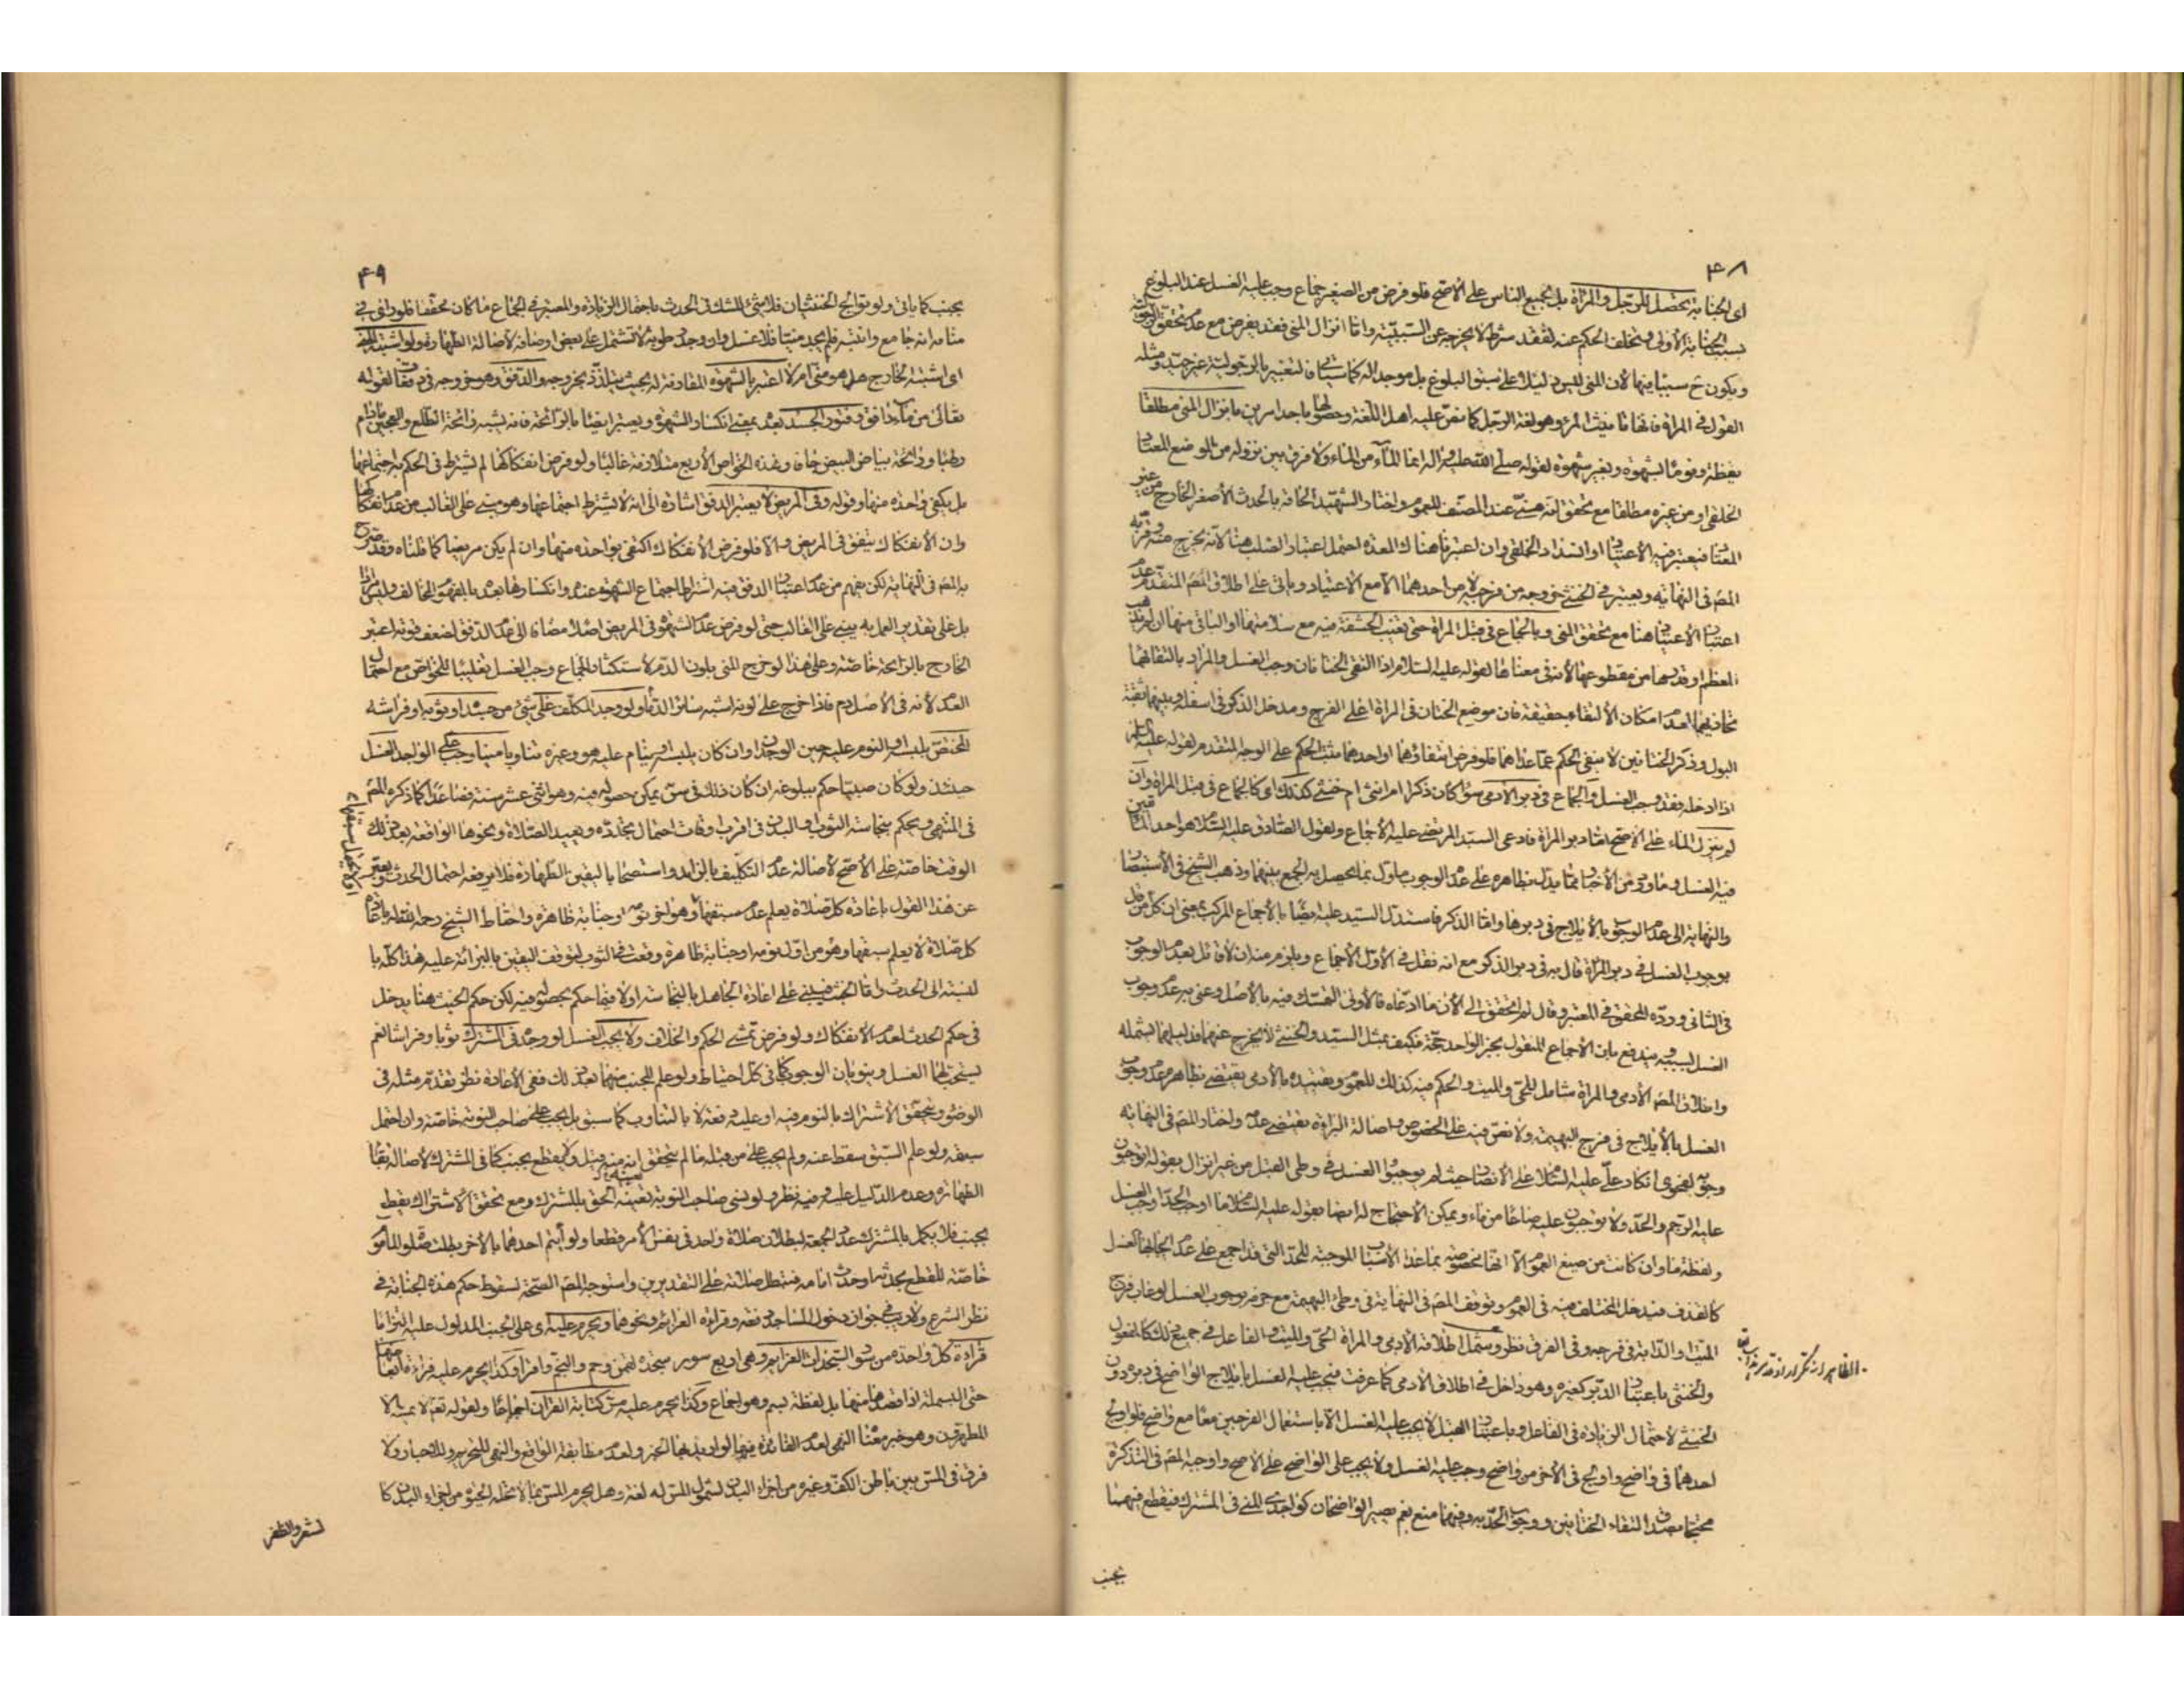 ٤٨
اى الجنابة يحصل للرجل والمرأة بل لجميع الناس على الأصح فلو فرض من الصغير جماع وجب عليه الغسل عند البلوغ
بسبب الجنابة الأولى ويتخلف الحكم عنه لفقد شرط لا يخرجه عن السببية واما انزال المنى فقد يفرض مع عدم تحقق البلوغ
ويكون ح سببا فيها لأن المنى ليس دليلا على سبق البلوغ بل موجد له كما سيأتى فالتعبير بالرجولية غير جيد ومثله
القول فى المرأة فانها تانيث المرء وهو لغة الرجل كما نص عليه اهل اللغة وحصولها باحد امرين بانزال المنى مطلقا
يقظة ونوما بشهوة وبغير شهوة لقوله صلى الله عليه واله انما الماء من الماء ولا فرق بين نزوله من الموضع المعتاد
الخلقى او من غيره مطلقا مع تحقق انه منى عند المصنف للعموم واختار الشهيد الحاقه بالحدث الأصغر الخارج من غير
المعتاد فيعتبر فيه الاعتياد او انسداد الخلقى وان اعتبرناهناك المعدة احتمل اعتبار الصلب هنا لانه يخرج منه وقربه
المص فى النهاية ويعتبر فى الخنثى خروجه من فرجيه لا من احدهما الا مع الاعتياد وياتى على اطلاق المص المتقدم عدم
اعتبار الاعتياد هنا مع تحقق المنى وبالجماع فى قبل المرأة حتى تغيب الحشفة فيه مع سلامتها او الباقى منها ان لم يذهب
المعظم او قدرها من مقطوعها لأنه فى معناها لقوله عليه السلام اذا التقى الختانان وجب الغسل والمراد بالتقائهما
تحاذيهما لعدم امكان الالتقاء حقيقة فان موضع الختان فى المرأة اعلى الفرج ومدخل الذكر فى اسفله وبينهما ثقبة
البول وذكر الختانين لا ينفى الحكم عما عداهما فلو فرض انتفاؤهما او احدهما ثبت الحكم على الوجه المتقدم لقوله عليه السلم
اذا ادخله فقد وجب الغسل والجماع فى دبر الآدمى سواء كان ذكرا ام انثى ام خنثى كذلك اى كالجماع فى قبل المرأة وان
لم ينزل الماء على الأصح اما دبر المرأة فادعى السيد المرتضى عليه الاجماع ولقول الصادق عليه السلام هو احد المأتيين
فيه الغسل وما روى من الأخبار مما يدل بظاهره على عدم الوجوب مأول بما يحصل به الجمع بينهما وذهب الشيخ فى الأستبصار
والنهاية الى عدم الوجوب بالأيلاج فى دبرها واما الذكر فاستدل السيد عليه ايضا بالأجماع المركب بمعنى ان كل من قال
بوجوب الغسل فى دبر المرأة قال به فى دبر الذكر مع انه نقل فى الأول الأجماع ويلزم منه ان لا قائل بعدم الوجوب
فى الثانى ورده المحقق فى المعتبر وقال لم اتحقق الى الآن ما ادعاه فالأولى التمسك فيه بالأصل وعنى به عدم وجوب
الغسل بسببه ويندفع بان الأجماع المنقول بخبر الواحد حجة فكيف بمثل السيد والخنثى لا يخرج عنهما فدليلهما يشمله
واطلاق المص الآدمى والمرأة شامل للحى والميت والحكم فيه كذلك للعموم وتقييده بالآدمى يقتضى بظاهره عدم وجوب
الغسل بالأيلاج فى فرج البهيمة ولا نص فيه على الخصوص واصالة البراءة تقتضى عدمه واختار المص فى النهاية
وجوبه لفحوى انكار على عليه السلام على الأنصار حيث لم يوجبوا الغسل فى وطى القبل من غير انزال بقوله اتوجبون
عليه الرجم والحد ولا توجبون عليه صاعا من ماء ويمكن الأحتجاج له ايضا بقوله عليه السلام ما اوجب الحد اوجب الغسل
ولفظة ما وان كانت من صيغ العموم الا انها مخصوصة بماعدا الأسباب الموجبة للحد التى قد اجمع على عدم ايجابها الغسل
كالقذف فيدخل المختلف فيه فى العموم وتوقف المص فى النهاية فى وطى البهيمة مع جزمه بوجوب الغسل لو غاب فرج
الميت او الدابة فى فرجه وفى الفرق نظر وشمل اطلاقه الآدمى والمرأة الحى والميت والفاعل فى جميع ذلك كالمفعول
والخنثى باعتبار الدبر كغيره وهو داخل فى اطلاق الآدمى كما عرفت فيجب عليه الغسل بايلاج الواضح فى دبره دون
الخنثى لاحتمال الزيادة فى الفاعل وباعتبار القبل لا يجب عليه الغسل الا باستعمال الفرجين معا مع واضح فلو اولج
احدهما فى واضح واولج فى الآخر من واضح وجب عليه الغسل ولا يجب على الواضح على الأصح واوجبه المص فى التذكرة
محتجا بصدق التقاء الختانين ووجوب الحد به وفيهما منع نعم يصير الواضحان كواجدى المنى فى المشترك فيقطع فيهما
يجنب
٤٩
يجنب كما ياتى ولو توالج الخنثيان فلا شئ للشك فى الحدث باحتمال الزيادة والمعتبر فى الجماع ما كان محققا فلو رأى فى
منامه انه جامع وانتبه فلم يجد منيا فلا غسل وان وجد رطوبة لا تشتمل على بعض اوصافه لأصالة الطهارة ولو اشتبه المنى
اى اشتبه الخارج هل هو منى ام لا اعتبر بالشهوة المقارنة له بحيث يتلذذ بخروجه والدفق وهو خروجه فى دفقات لقوله
تعالى من ماء دافق وفتور الجسد بعده بمعنى انكسار الشهوة ويعتبر ايضا بالرائحة فانه يشبه رائحة الطلع والعجين مادام
رطبا ورائحة بياض البيض جافا وهذه الخواص الأربع متلازمة غالبا ولو فرض انفكاكها لم يشترط فى الحكم به اجتماعها
بل يكفى واحدة منها وقوله وفى المريض لا يعتبر الدفق اشارة الى انه لا يشترط اجتماعها وهو مبنى على الغالب من عدم انفكاكها
وان الانفكاك يتفق فى المريض والا فلو فرض الانفكاك اكتفى بواحدة منها وان لم يكن مريضا كما قلناه وقد صرح
به المص فى النهاية لكن يفهم من عدم اعتبار الدفق فيه اشتراط اجتماع الشهوة عنده وانكسارها بعده بالمفهوم المخالف وليس مرادا
بل على تقدير العمل به يبنى على الغالب حتى لو فرض عدم الشهوة فى المريض اصلا مضافا الى عدم الدفق لضعف قوته اعتبر
الخارج بالرائحة خاصة وعلى هذا لو خرج المنى بلون الدم لاستكثار الجماع وجب الغسل تغليبا للخواص مع احتمال
العدم لأنه فى الأصل دم فاذا خرج على لونه اشبه سائر الدماء ولو وجد المكلف على شئ من جسده او ثوبه او فراشه
المختص بلبسه او النوم عليه حين الوجدان وان كان يلبسه او ينام عليه هو وغيره تناوبا منيا وجب على الواجد الغسل
حينئذ ولو كان صبيا حكم ببلوغه ان كان ذلك فى سن يمكن حصوله فيه وهو اثنى عشر سنة فصاعدا كما ذكره المص
فى المنتهى ويحكم بنجاسة الثوب والبدن فى اقرب اوقات احتمال تجدده ويعيد الصلاة ونحوها الواقعة بعد ذلك
الوقت خاصة على الأصح لأصالة عدم التكليف بالزائد واستصحابا ليقين الطهارة فلا يرفعه احتمال الحدث ويعبر
عن هذا القول باعادة كل صلاة يعلم عدم سبقها وهو آخر نومة او جنابة ظاهرة واحتاط الشيخ رحمه الله باعادة
كل صلاة لا يعلم سبقها وهو من اول نومه او جنابة ظاهرة وقعت فى الثوب لتوقف اليقين بالبراءة عليه هذا كله با
لنسبة الى الحدث واما الخبث فيبنى على اعادة الجاهل بالنجاسة اولا فيما حكم بحصوله فيه لكن حكم الخبث هنا يدخل
فى حكم الحدث لعدم الانفكاك ولو فرض تمشى الحكم والخلاف ولا يجب الغسل لو وجد فى المشترك ثوبا وفراشا نعم
يستحب لهما الغسل وينويان الوجوب كما فى كل احتياط ولو علم المجنب منهما بعد ذلك ففى الأعادة نظر تقدم مثله فى
الوضوء ويتحقق الأشتراك بالنوم فيه او عليه دفعة لا بالتناوب كما سبق بل يجب على صاحب النوبة خاصة وان احتمل
سبقه ولو علم السبق سقط عنه ولم يجب على من قبله ما لم يتحقق انه منه قيل ولا يقطع بجنب كما فى المشترك لأصالة بقاء
الطهارة وعدم الدليل عليه وفيه نظر ولو نسى صاحب النوبة تعيينه الحق بالمشترك ومع تحقق الاشتراك يقطع
بجنب فلا يكمل بالمشترك عدد الجمعة لبطلان صلاة واحد فى نفس الأمر قطعا ولو أتم احدهما بالآخر بطلت صلوة المأموم
خاصة للقطع بحدثه او حدث امامه فتبطل صلاته على التقديرين واستوجه المص الصحة لسقوط حكم هذه الجنابة فى
نظر الشرع ولا ريب فى جواز دخول المساجد دفعة وقراءة العزائم ونحوهما ويحرم عليه اى على الجنب المدلول عليه التزاما
قراءة كل واحدة من سور السجدات العزائم وهى اربع سور سجدة لقمن وحم والنجم واقرأ وكذا يحرم عليه قراءة ابعاضها
حتى البسملة اذا قصدها منها بل لفظة بسم وهو اجماع وكذا يحرم عليه مس كتابة القران اجماعا ولقوله تعالى لا يمسه الا
المطهرون وهو خبر معناه النهى لعدم الفائدة فيها لو اريد بها الخبر ولعدم مطابقة الواقع والنهى للتحريم وللأخبار ولا
فرق فى المس بين باطن الكف وغيره من اجزاء البدن لشمول المس له لغة وهل يحرم المس بما لا تحله الحيوة من اجزاء البدن كا
لشعر والظفر